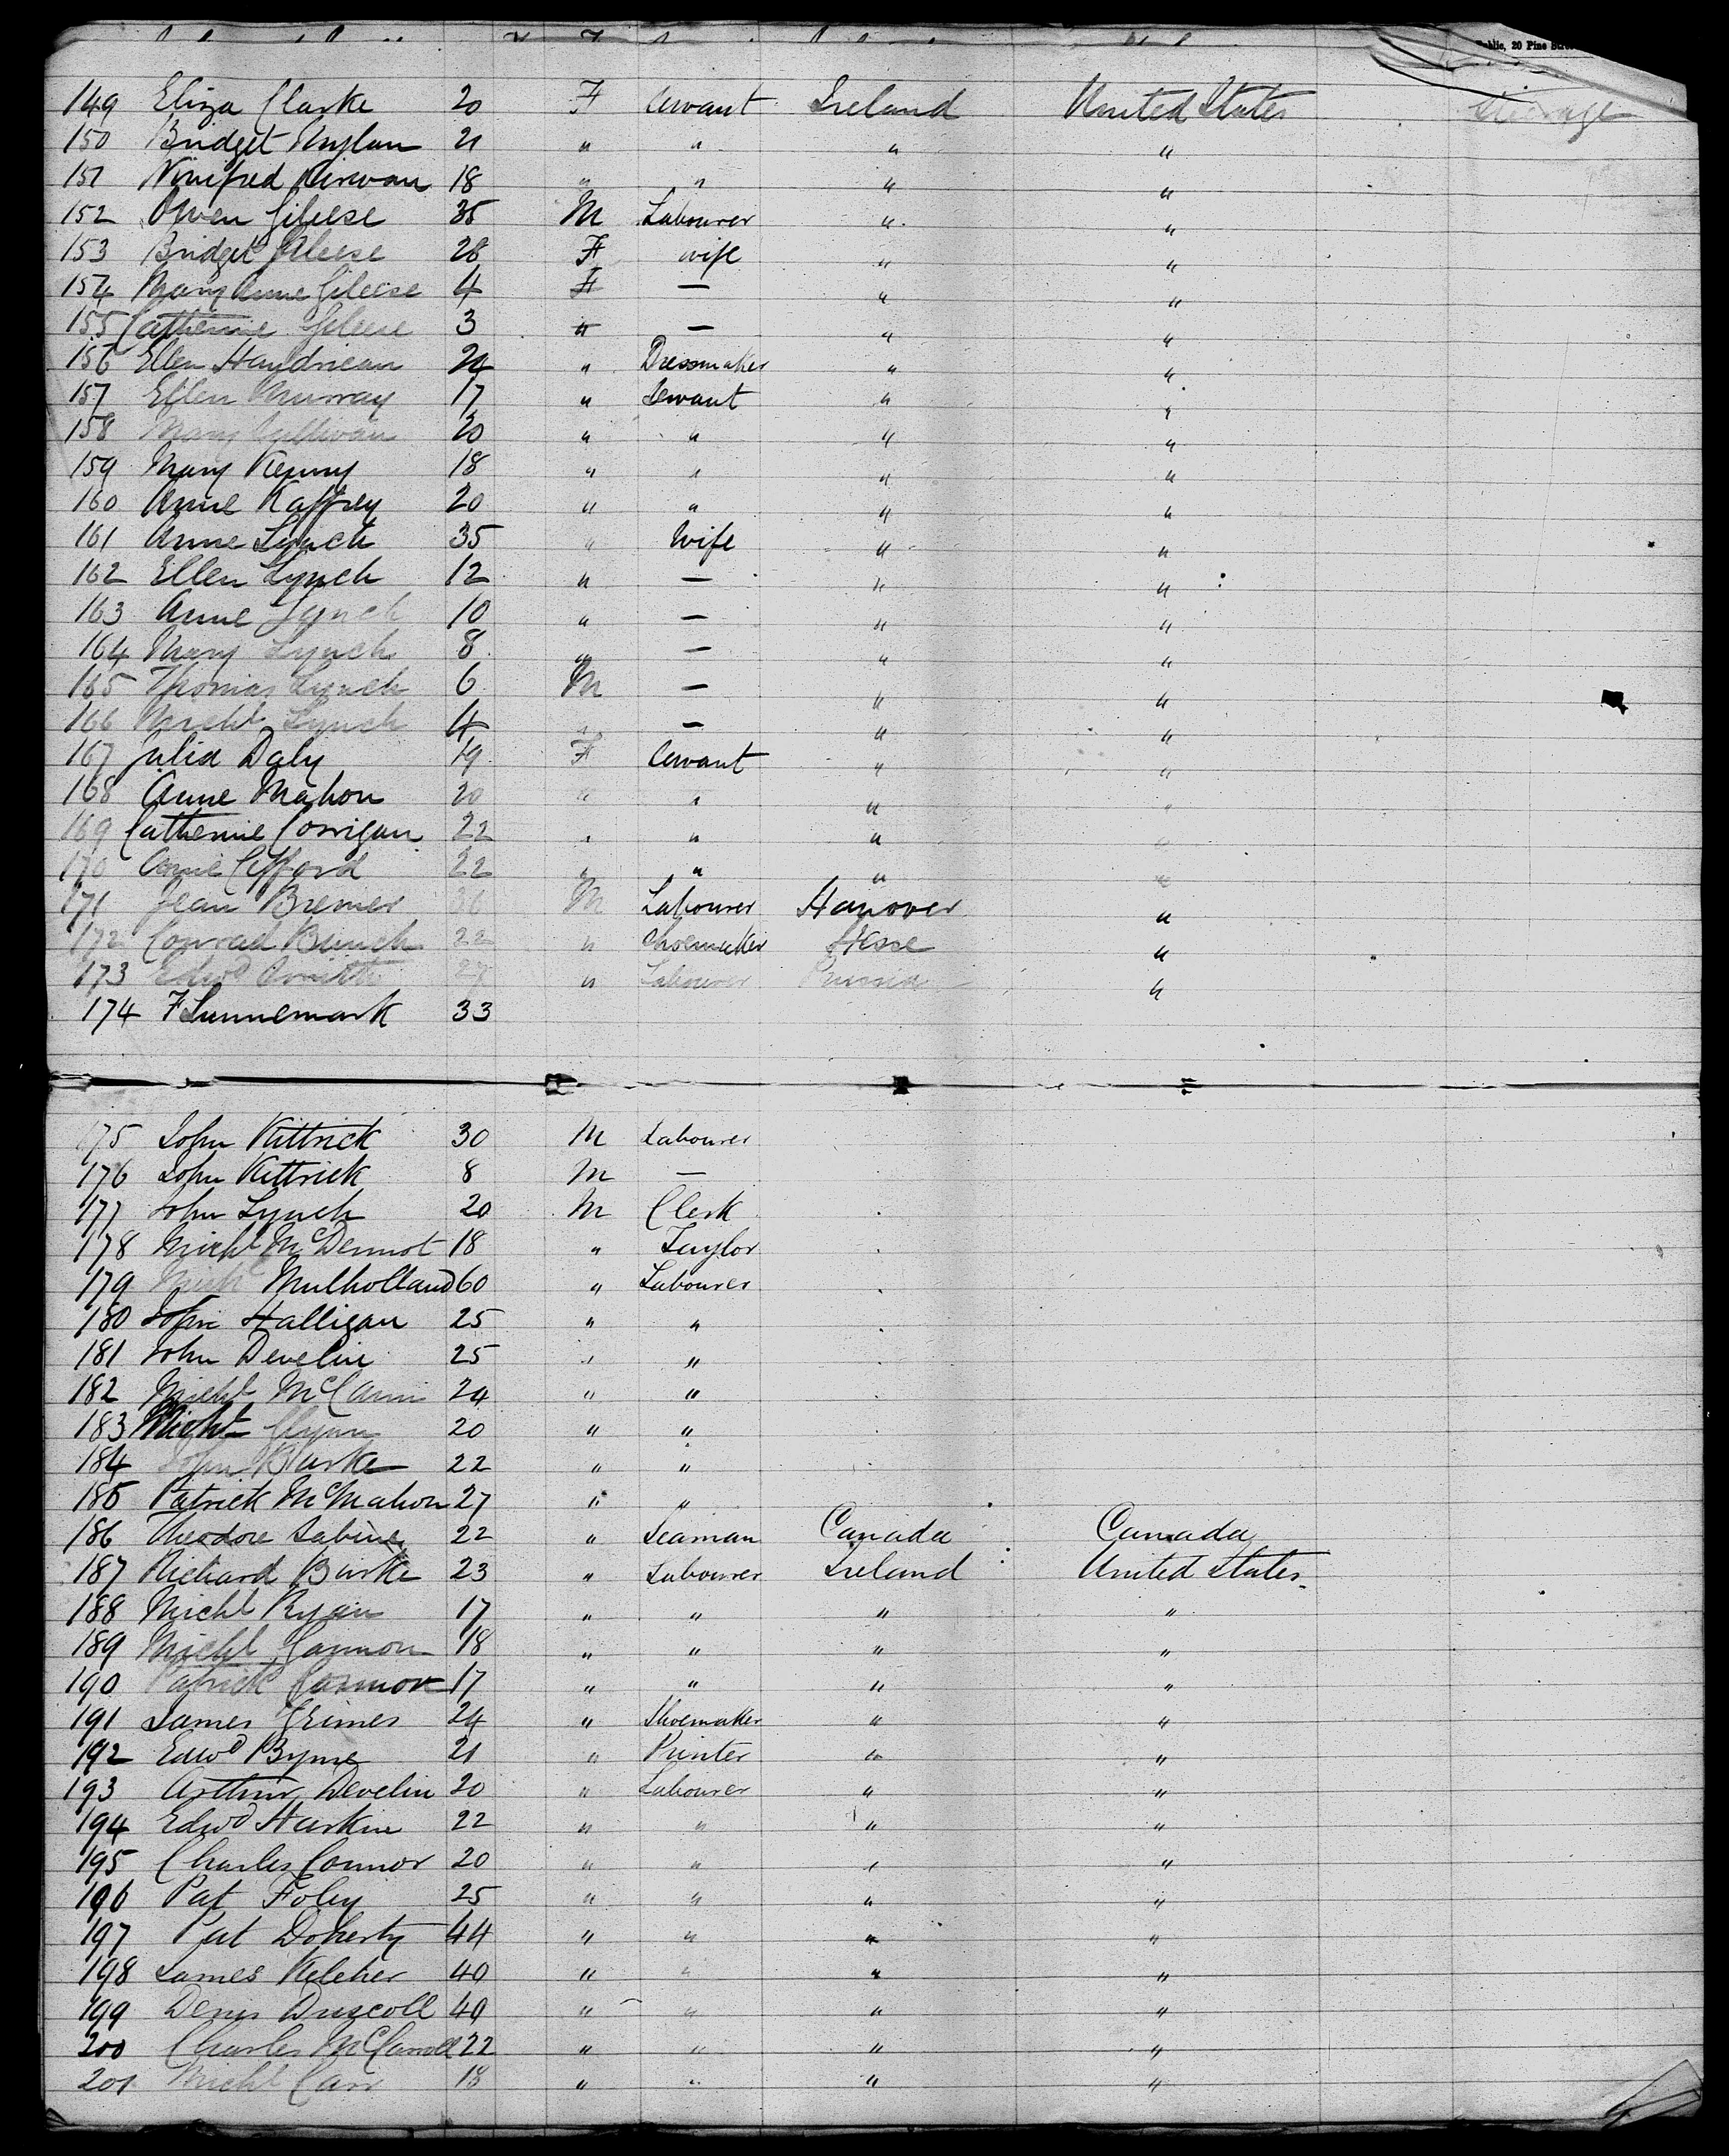 Public, 20 Pine Street
149 Eliza Clarke 20 F Servant Ireland United States Steerage
150 Bridget Nylan 21 " " " "
151 Winifred Kirwan 18 " " " "
152 Owen Gileese 35 M Labourer " "
153 Bridget Gileese 28 F wife " "
154 Mary Anne Gileese 4 F — " "
155 Catherine Gileese 3 " — " "
156 Ellen 24 " Dressmaker " "
157 Ellen Murray 17 " Servant " "
158 Mary Sullivan 20 " " " "
159 Mary Kenny 18 " " " "
160 Anne Kaffrey 20 " " " "
161 Anne Lynch 35 " Wife " "
162 Ellen Lynch 12 " — " "
163 Anne Lynch 10 " — " "
164 Mary Lynch 8 " — " "
165 Thomas Lynch 6 M — " "
166 Michl Lynch 4 " — " "
167 Julia Daly 19 F Servant " "
168 Anne Mahon 20 " " " "
169 Catherine Corrigan 22 " " " "
170 Anne Clifford 22 " " " "
171 Jean Bremer 36 M Labourer Hanover "
172 Conrad Bunch 22 " Shoemaker Hesse "
173 Edwd 27 " Labourer Prussia "
174 F Sunnemark 33
175 John Kittrick 30 M Labourer
176 John Kittrick 8 M —
177 John Lynch 20 M Clerk
178 Michl McDermot 18 " Taylor
179 Michl Mulholland 60 " Labourer
180 John Halligan 25 " "
181 John Develin 25 " "
182 Michl McCann 24 " "
183 Michl Glynn 20 " "
184 John Burke 22 " "
185 Patrick McMahon 27 " "
186 Theodore Sabine 22 " Seaman Canada Canada
187 Richard Burke 23 " Labourer Ireland United States
188 Michl Ryan 17 " " " "
189 Michl Cannon 18 " " " "
190 Patrick Connor 17 " " " "
191 James Grimes 24 " Shoemaker " "
192 Edwd Byrne 21 " Printer " "
193 Arthur Develin 20 " Labourer " "
194 Edwd Harkin 22 " " " "
195 Charles Connor 20 " " " "
196 Pat Foley 25 " " " "
197 Pat Doherty 44 " " " "
198 James Keleher 40 " " " "
199 Denis Driscoll 40 " " " "
200 Charles McCarroll 22 " " " "
201 Michl Carr 18 " " " "